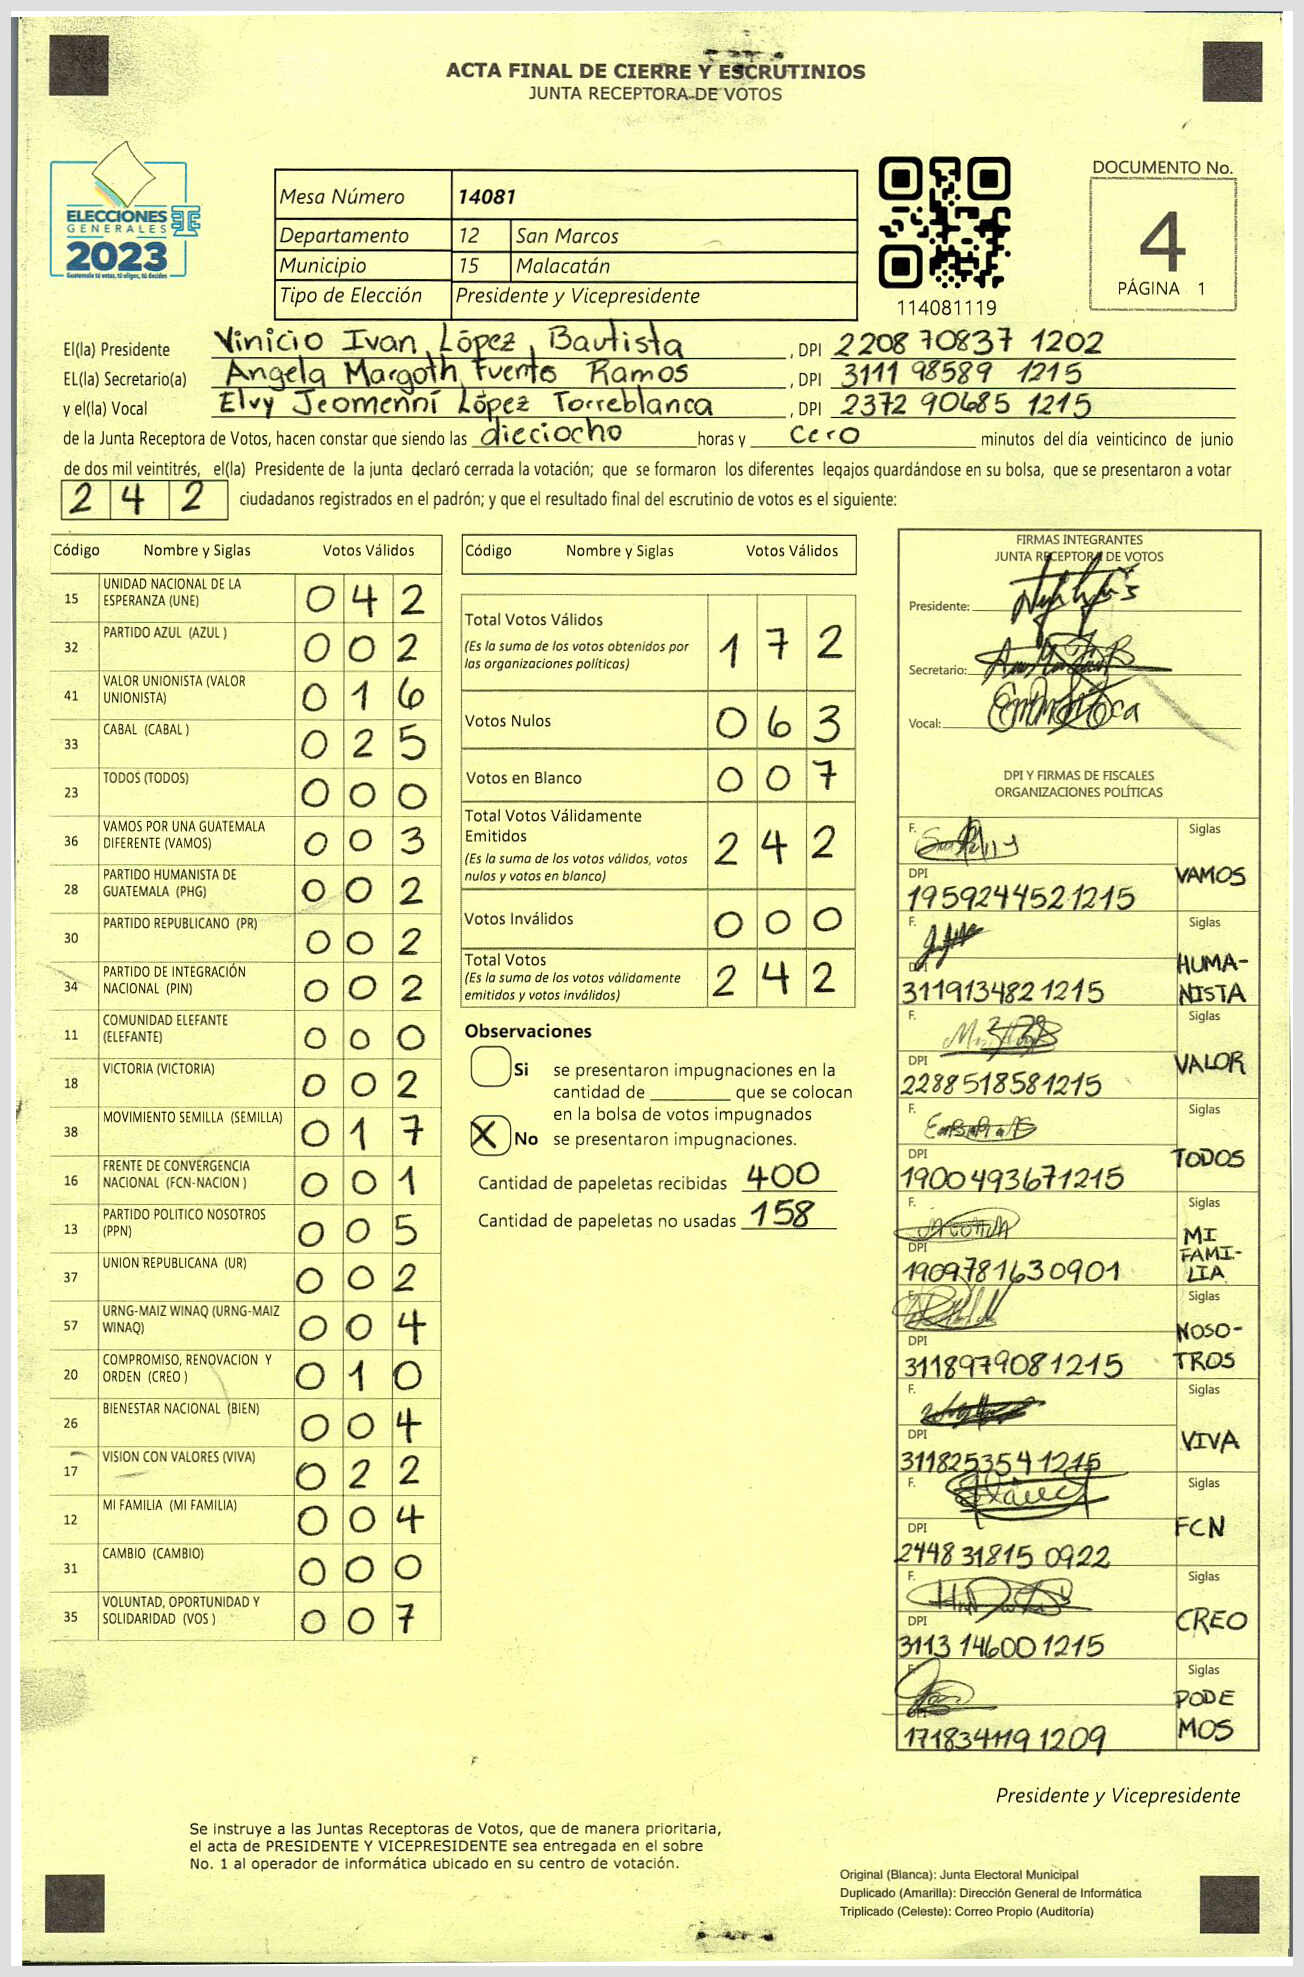 ACTA FINAL DE CIERRE Y ESCRUTINIOS
JUNTA RECEPTORA DE VOTOS
ELECCIONES
GENERALES
2023
Guatemala tú votas, tú eliges, tú decides
Mesa Número 14081
Departamento 12 San Marcos
Municipio 15 Malacatán
Tipo de Elección Presidente y Vicepresidente
114081119
DOCUMENTO No.
4
PÁGINA 1
El(la) Presidente Vinicio Ivan López Bautista, DPI 2208 70837 1202
EL(la) Secretario(a) Angela Margoth Fuentes Ramos, DPI 3111 98589 1215
y el(la) Vocal Elvy Jeomenní López Torreblanca, DPI 2372 90685 1215
de la Junta Receptora de Votos, hacen constar que siendo las dieciocho horas y cero minutos del día veinticinco de junio
de dos mil veintitrés, el(la) Presidente de la junta declaró cerrada la votación; que se formaron los diferentes legajos quardándose en su bolsa, que se presentaron a votar
242 ciudadanos registrados en el padrón; y que el resultado final del escrutinio de votos es el siguiente:
Código Nombre y Siglas Votos Válidos
15 UNIDAD NACIONAL DE LA ESPERANZA (UNE) 042
32 PARTIDO AZUL (AZUL ) 002
41 VALOR UNIONISTA (VALOR UNIONISTA) 016
33 CABAL (CABAL ) 025
23 TODOS (TODOS) 000
36 VAMOS POR UNA GUATEMALA DIFERENTE (VAMOS) 003
28 PARTIDO HUMANISTA DE GUATEMALA (PHG) 002
30 PARTIDO REPUBLICANO (PR) 002
34 PARTIDO DE INTEGRACIÓN NACIONAL (PIN) 002
11 COMUNIDAD ELEFANTE (ELEFANTE) 000
18 VICTORIA (VICTORIA) 002
38 MOVIMIENTO SEMILLA (SEMILLA) 017
16 FRENTE DE CONVERGENCIA NACIONAL (FCN-NACION ) 001
13 PARTIDO POLITICO NOSOTROS (PPN) 005
37 UNION REPUBLICANA (UR) 002
57 URNG-MAIZ WINAQ (URNG-MAIZ WINAQ) 004
20 COMPROMISO, RENOVACION Y ORDEN (CREO ) 010
26 BIENESTAR NACIONAL (BIEN) 004
17 VISION CON VALORES (VIVA) 022
12 MI FAMILIA (MI FAMILIA) 004
31 CAMBIO (CAMBIO) 000
35 VOLUNTAD, OPORTUNIDAD Y SOLIDARIDAD (VOS ) 007
Código Nombre y Siglas Votos Válidos
Total Votos Válidos 172
(Es la suma de los votos obtenidos por
las organizaciones políticas)
Votos Nulos 063
Votos en Blanco 007
Total Votos Válidamente
Emitidos 242
(Es la suma de los votos válidos, votos
nulos y votos en blanco)
Votos Inválidos 000
Total Votos 242
(Es la suma de los votos válidamente
emitidos y votos inválidos)
Observaciones
Si se presentaron impugnaciones en la
cantidad de ________ que se colocan
en la bolsa de votos impugnados
X No se presentaron impugnaciones.
Cantidad de papeletas recibidas 400
Cantidad de papeletas no usadas 158
FIRMAS INTEGRANTES
JUNTA RECEPTORA DE VOTOS
Presidente:
Secretario:
Vocal:
DPI Y FIRMAS DE FISCALES
ORGANIZACIONES POLÍTICAS
F. Siglas
DPI 1959244521215 VAMOS
F. Siglas
DPI 3119134821215 HUMA-
NISTA
F. Siglas
DPI 2288518581215 VALOR
F. Siglas
DPI 1900493671215 TODOS
F. Siglas
DPI 1909781630901 MI
FAMI-
LIA
F. Siglas
DPI 3118979081215 NOSO-
TROS
F. Siglas
DPI 3118253541215 VIVA
F. Siglas
DPI 2448 31815 0922 FCN
F. Siglas
DPI 3113 14600 1215 CREO
F. Siglas
DPI 171834119 1209 PODE
MOS
Presidente y Vicepresidente
Se instruye a las Juntas Receptoras de Votos, que de manera prioritaria,
el acta de PRESIDENTE Y VICEPRESIDENTE sea entregada en el sobre
No. 1 al operador de informática ubicado en su centro de votación.
Original (Blanca): Junta Electoral Municipal
Duplicado (Amarilla): Dirección General de Informática
Triplicado (Celeste): Correo Propio (Auditoría)